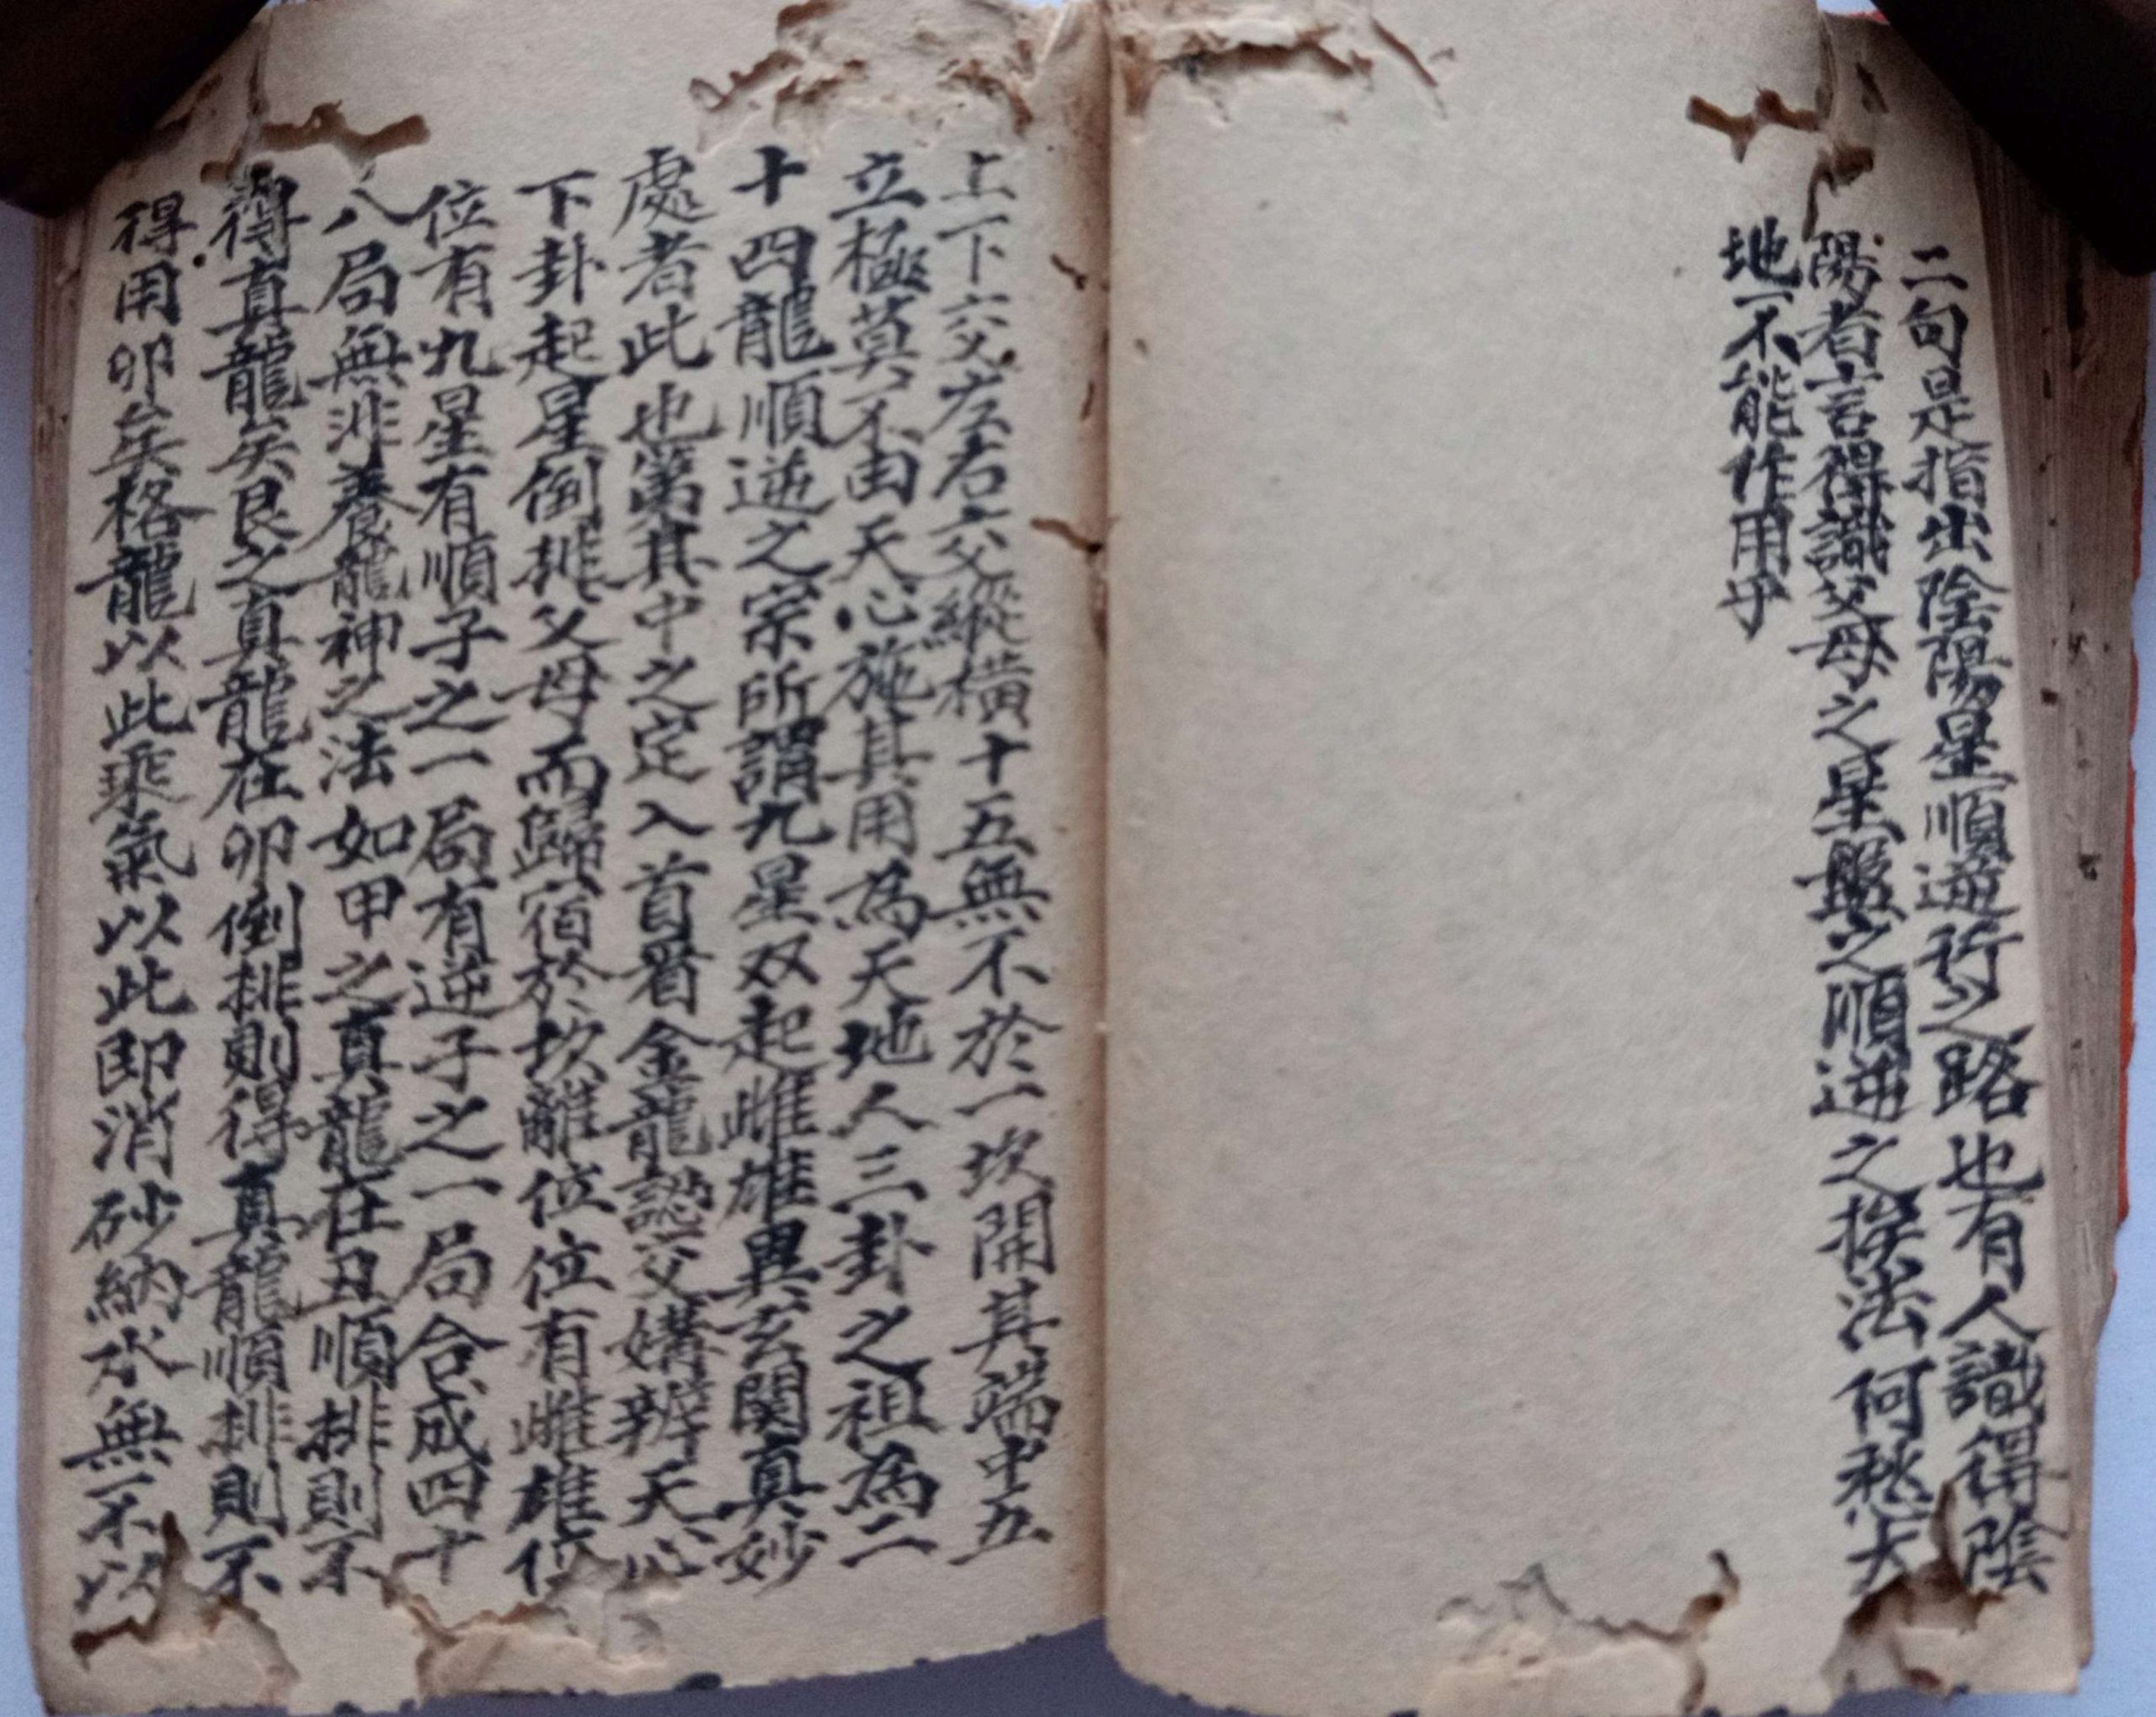 二句是指出陰陽星順逆行之路也有人識得陰
陽者言得識父母之星盤之順逆之挨法何愁大
地不能作用乎
上下六父左右六父縱橫十五無不於一坎開其端中五
立極莫不由天心施其用為天地人三卦之祖為二
十四龍順逆之宗所謂九星双起雌雄異玄関真妙
處者此也第其中之定入首看金龍認父媾辨天心
下卦起星倒排父母而歸宿於坎離位位有雌雄位
位有九星有順子之一局有逆子之一局合成四十
八局無非養龍神之法如甲之真龍在丑順排則不
得真龍矣艮之真龍在卯倒排則得真龍順排則不
得用卯矣格龍以此乘氣以此即消砂納水無不以